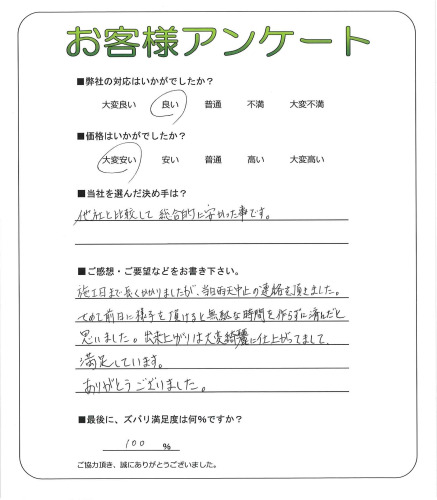 お客様アンケート
■弊社の対応はいかがでしたか？
大変良い 良い 普通 不満 大変不満
■価格はいかがでしたか？
大変安い 安い 普通 高い 大変高い
■当社を選んだ決め手は？
他社と比較して総合的に安かった事です。
■ご感想・ご要望などをお書き下さい。
施工日まで長くかかりましたが、当日雨天中止の連絡を頂きました。
せめて前日に様子を頂けると無駄な時間を作らずに済んだと
思いました。出来上がりは大変綺麗に仕上がってまして、
満足しています。
ありがとうございました。
■最後に、ズバリ満足度は何%ですか？
100 %
ご協力頂き、誠にありがとうございました。